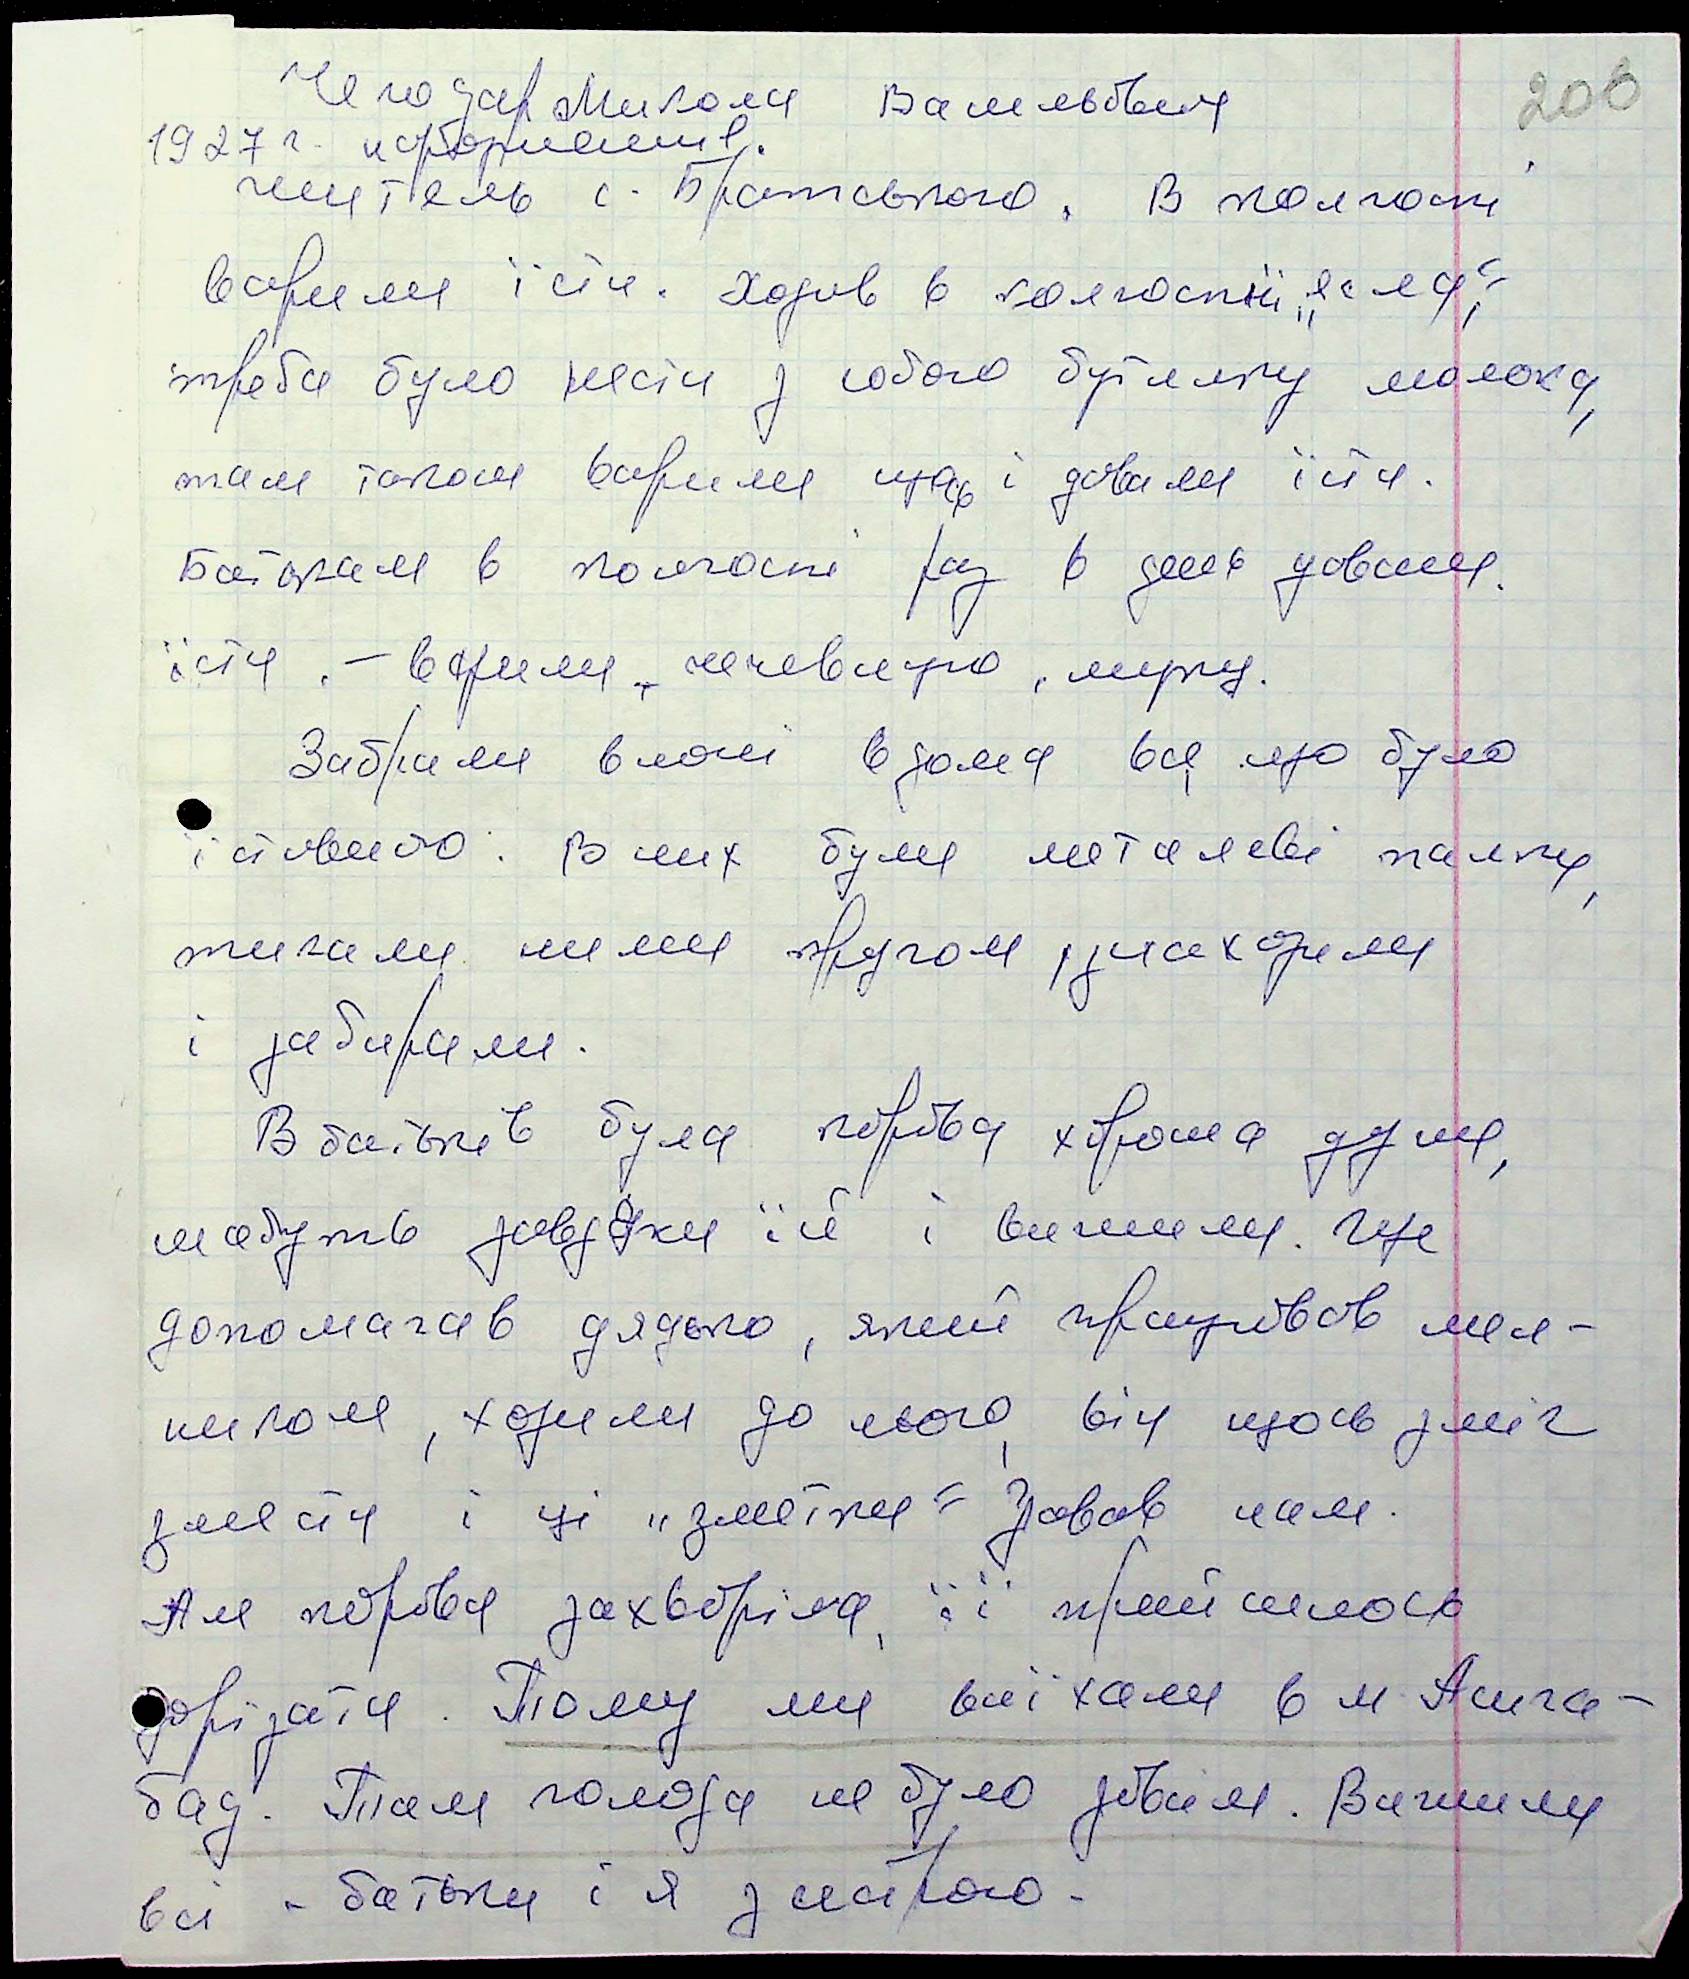 Чегодар Микола Васильович
208
1927 г. народження.
житель с. Братського. В колгоспі
варили їсти. Ходив в колгоспні „ясла“,
треба було нести з собою бутилку молока,
там також варили щось і давали їсти.
Батькам в колгоспі раз в день давали
їсти. – варили чечевицю, муку.
Забрали вночі вдома все що було
їстивного. В них були металеві палки,
тикали ними кругом, знаходили
і забирали.
В батьків була корова хороша дуже,
мабуть завдяки їй і вижили. Ще
допомагав дядько, який працював мел-
ником, ходили до нього, він щось зміг
змести і ці „змітки“ давав нам.
Але корова захворіла, її прийшлось
дорізати. Тому ми виїхали в м. Ашга-
бад. Там голода не було зовсім. Вижили
всі – батьки і я з сестрою.